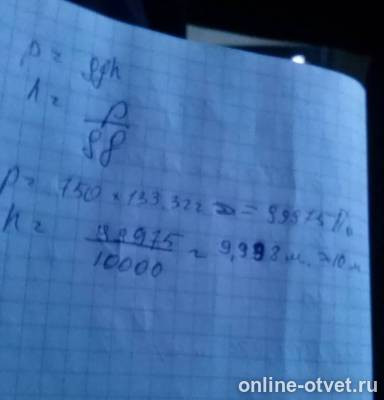 p = ρgh
h =
p
ρg
p = 750 × 133,322 = 99975 Па
h =
99975
10000
≈ 9,998 м. ≈ 10 м
online-otvet.ru